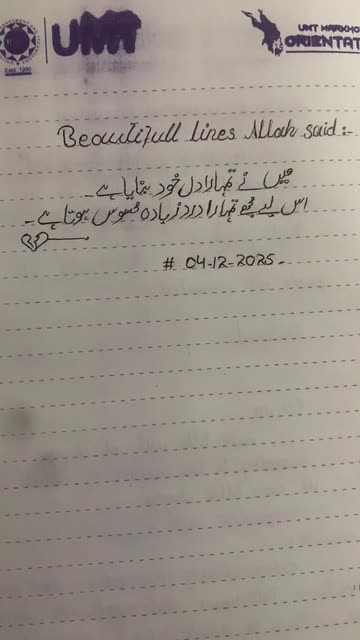 UMT
Estd. 1990
UMT MARKHO
ORIENTAT
Beautifull lines Allah said :-
میں نے تمہارا دل خود بنایا ہے۔
اس لیے مجھے تمہارا درد زیادہ محسوس ہوتا ہے۔
# 04-12-2025.